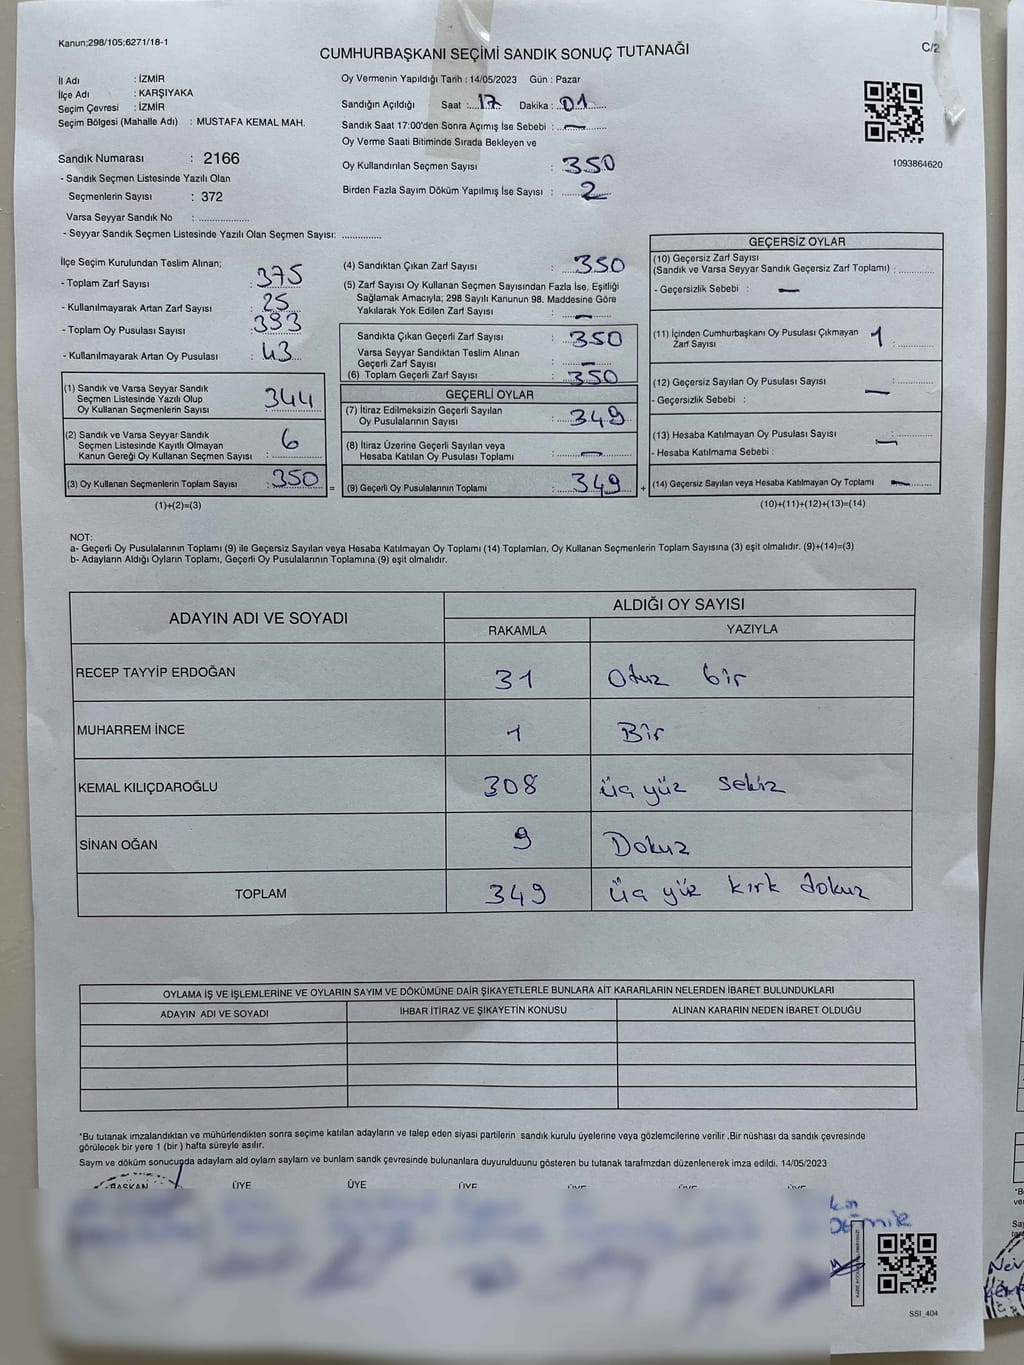 Kanun;298/105;6271/18-1
CUMHURBAŞKANI SEÇİMİ SANDIK SONUÇ TUTANAĞI
C/2
İl Adı : İZMİR
İlçe Adı : KARŞIYAKA
Seçim Çevresi : İZMİR
Seçim Bölgesi (Mahalle Adı) : MUSTAFA KEMAL MAH.
Sandık Numarası : 2166
- Sandık Seçmen Listesinde Yazılı Olan
Seçmenlerin Sayısı : 372
Varsa Seyyar Sandık No : ..................
- Seyyar Sandık Seçmen Listesinde Yazılı Olan Seçmen Sayısı: ..............
Oy Vermenin Yapıldığı Tarih : 14/05/2023 Gün : Pazar
Sandığın Açıldığı Saat : 17 Dakika : 01
Sandık Saat 17:00'den Sonra Açımış İse Sebebi : —
Oy Verme Saati Bitiminde Sırada Bekleyen ve
Oy Kullandırılan Seçmen Sayısı : 350
Birden Fazla Sayım Döküm Yapılmış İse Sayısı : 2
1093864620
İlçe Seçim Kurulundan Teslim Alınan;
- Toplam Zarf Sayısı : 375
- Kullanılmayarak Artan Zarf Sayısı : 25
- Toplam Oy Pusulası Sayısı : 393
- Kullanılmayarak Artan Oy Pusulası : 43
(1) Sandık ve Varsa Seyyar Sandık
Seçmen Listesinde Yazılı Olup
Oy Kullanan Seçmenlerin Sayısı : 344
(2) Sandık ve Varsa Seyyar Sandık
Seçmen Listesinde Kayıtlı Olmayan
Kanun Gereği Oy Kullanan Seçmen Sayısı : 6
(3) Oy Kullanan Seçmenlerin Toplam Sayısı : 350
(1)+(2)=(3)
=
(4) Sandıktan Çıkan Zarf Sayısı : 350
(5) Zarf Sayısı Oy Kullanan Seçmen Sayısından Fazla İse, Eşitliği
Sağlamak Amacıyla; 298 Sayılı Kanunun 98. Maddesine Göre
Yakılarak Yok Edilen Zarf Sayısı : —
Sandıkta Çıkan Geçerli Zarf Sayısı : 350
Varsa Seyyar Sandıktan Teslim Alınan
Geçerli Zarf Sayısı : —
(6) Toplam Geçerli Zarf Sayısı : 350
GEÇERLİ OYLAR
(7) İtiraz Edilmeksizin Geçerli Sayılan
Oy Pusulalarının Sayısı : 349
(8) İtiraz Üzerine Geçerli Sayılan veya
Hesaba Katılan Oy Pusulası Toplamı : —
(9) Geçerli Oy Pusulalarının Toplamı : 349
+
GEÇERSİZ OYLAR
(10) Geçersiz Zarf Sayısı
(Sandık ve Varsa Seyyar Sandık Geçersiz Zarf Toplamı) :
- Geçersizlik Sebebi : —
(11) İçinden Cumhurbaşkanı Oy Pusulası Çıkmayan
Zarf Sayısı 1 :
(12) Geçersiz Sayılan Oy Pusulası Sayısı :
- Geçersizlik Sebebi : —
(13) Hesaba Katılmayan Oy Pusulası Sayısı : —
- Hesaba Katılmama Sebebi :
(14) Geçersiz Sayılan veya Hesaba Katılmayan Oy Toplamı : —
(10)+(11)+(12)+(13)=(14)
NOT:
a- Geçerli Oy Pusulalarının Toplamı (9) ile Geçersiz Sayılan veya Hesaba Katılmayan Oy Toplamı (14) Toplamları, Oy Kullanan Seçmenlerin Toplam Sayısına (3) eşit olmalıdır. (9)+(14)=(3)
b- Adayların Aldığı Oyların Toplamı, Geçerli Oy Pusulalarının Toplamına (9) eşit olmalıdır.
ADAYIN ADI VE SOYADI
ALDIĞI OY SAYISI
RAKAMLA YAZIYLA
RECEP TAYYİP ERDOĞAN 31 Otuz bir
MUHARREM İNCE 1 Bir
KEMAL KILIÇDAROĞLU 308 üç yüz sekiz
SİNAN OĞAN 9 Dokuz
TOPLAM 349 üç yüz kırk dokuz
OYLAMA İŞ VE İŞLEMLERİNE VE OYLARIN SAYIM VE DÖKÜMÜNE DAİR ŞİKAYETLERLE BUNLARA AİT KARARLARIN NELERDEN İBARET BULUNDUKLARI
ADAYIN ADI VE SOYADI İHBAR İTİRAZ VE ŞİKAYETİN KONUSU ALINAN KARARIN NEDEN İBARET OLDUĞU
*Bu tutanak imzalandıktan ve mühürlendikten sonra seçime katılan adayların ve talep eden siyasi partilerin sandık kurulu üyelerine veya gözlemcilerine verilir .Bir nüshası da sandık çevresinde
görülecek bir yere 1 (bir ) hafta süreyle asılır.
Sayım ve döküm sonucunda adayların ald oyların sayıların ve bunların sandık çevresinde bulunanlara duyurulduunu gösteren bu tutanak tarafmzdan düzenlenerek imza edildi. 14/05/2023
BAŞKAN ÜYE ÜYE ÜYE
SSI_404